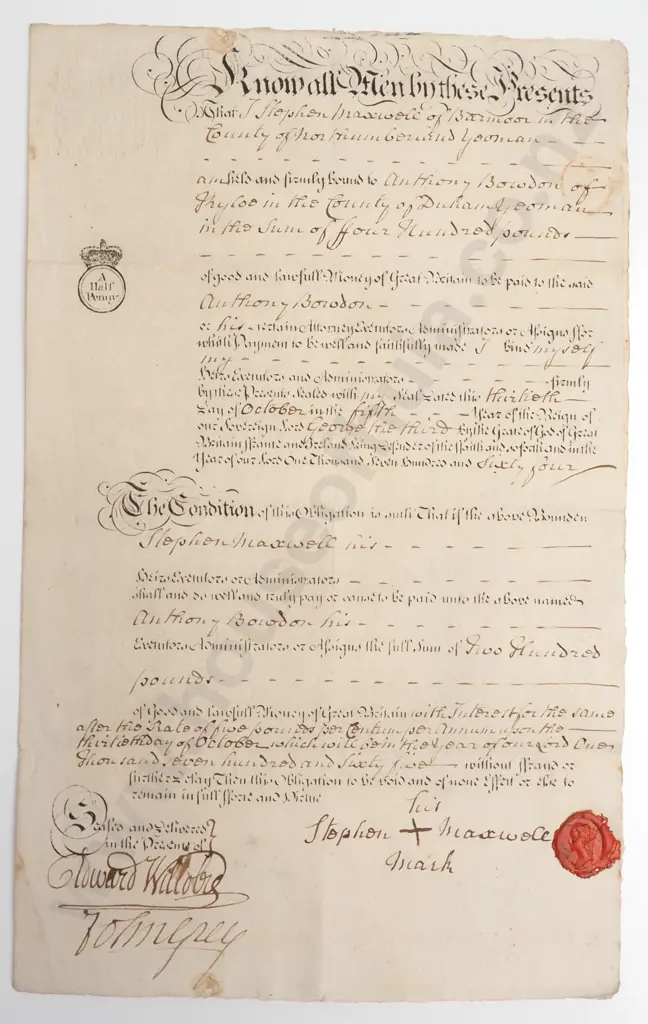 Know all Men by these Presents
That I Stephen Maxwell of Barmoor in the
County of Northumberland Yeoman
am held and firmly bound to Anthony Bowdon of
Kyloe in the County of Duham Yeoman
in the Sum of ffour Hundred pounds
of good and lawfull Money of Great Britain to be paid to the said
Anthony Bowdon
or his certain Attorney Executors Administrators or Assigns ffor
which Payment to be well and faithfully made I bind myself
my
Heirs Executors and Administrators firmly
by these Presents Sealed with my Seal Dated this thirtieth
Day of October in the fifth Year of the Reign of
our Sovereign Lord George the third by the Grace of God of Great
Britain ffrance and Ireland King Defender of the ffaith and so forth and in the
Year of our Lord One Thousand Seven Hundred and Sixty four
A
Half
Penny
The Condition of this Obligation is such That if the above Bounden
Stephen Maxwell his
Heirs Executors or Administrators
shall and do well and truly pay or cause to be paid unto the above named
Anthony Bowdon his
Executors Administrators or Assigns the full Sum of Two Hundred
pounds
of Good and lawfull Money of Great Britain with Interest for the same
after the Rate of five pounds per Centum per Annum upon the
thirtieth day of October which will be in the Year of our Lord One
Thousand seven hundred and Sixty five without ffraud or
further Delay Then this Obligation to be void and of none Effect or else to
remain in full fforce and Virtue
Sealed and Delivered
in the Presence of
his
Stephen + Maxwell
Mark
Edward Willobie
John Grey